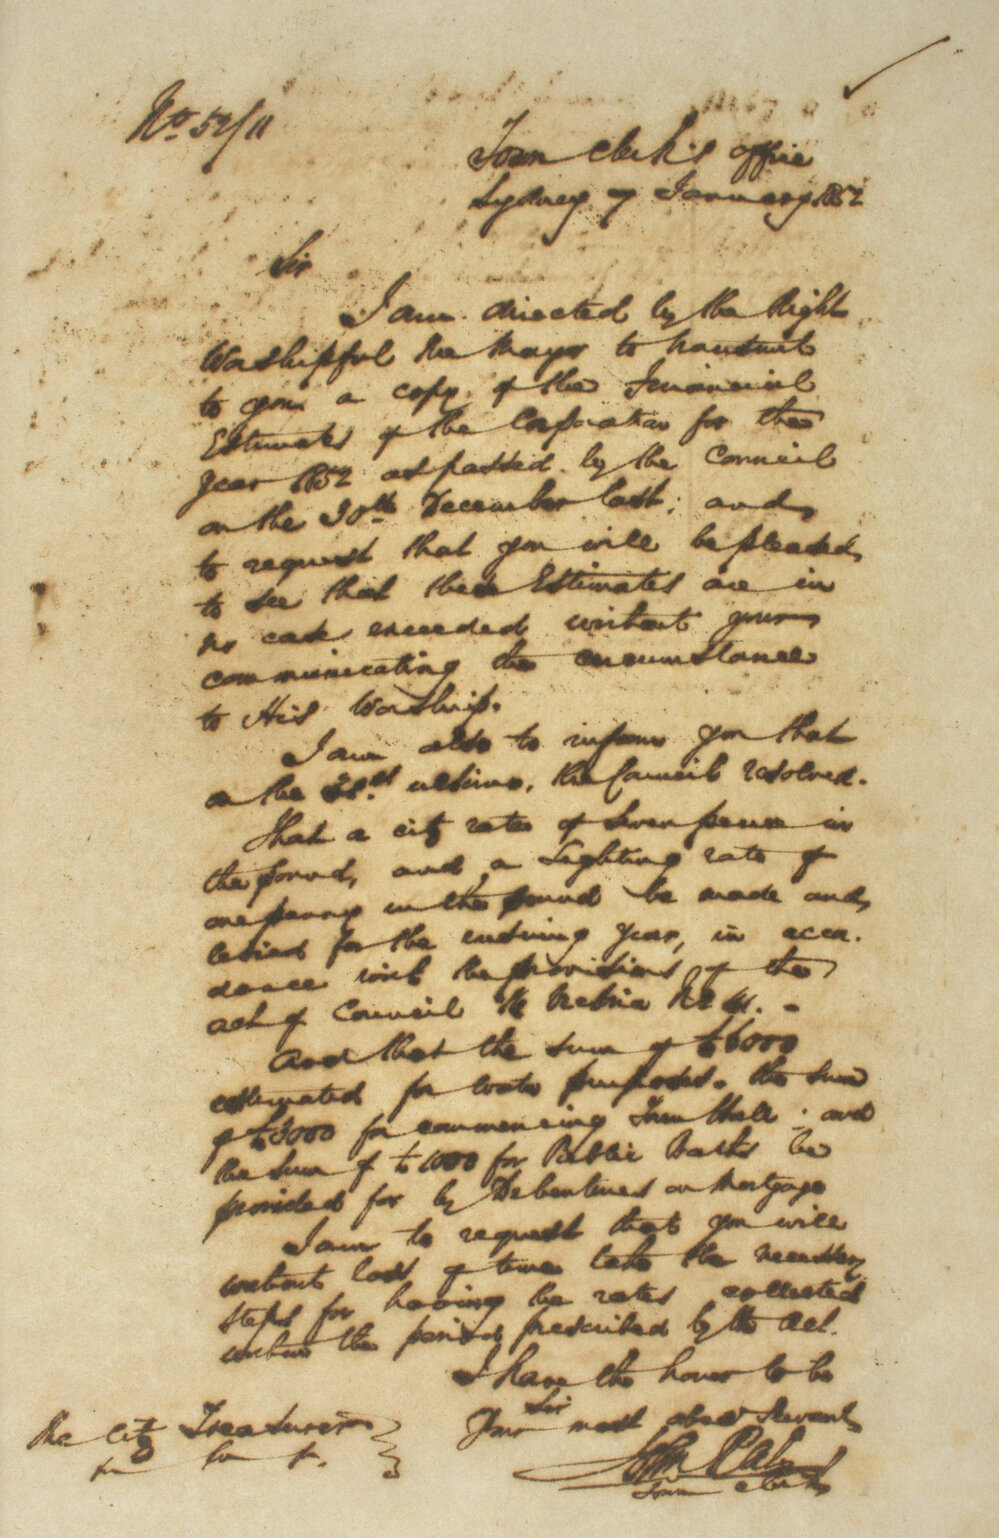 No. 52/11
Town Clerk's Office
Sydney 7 January 1852
Sir
I am directed by the Right
Worshipful the Mayor to transmit
to you a copy of the Financial
Estimates of the Corporation for the
year 1852 as passed by the Council
on the 30th December last; and
to request that you will be pleased
to see that these Estimates are in
no case exceeded without your
communicating the circumstance
to His Worship.
I am also to inform you that
on the ultimo, the Council resolved.
That a city rate of Seven pence in
the pound, and a Lighting rate of
one penny in the pound be made and
levied for the ensuing year, in accor.
dance with the provisions of the
act of Council
And that the sum of £6000
estimated for water purposes. the sum
of £3000 for commencing Town Hall; and
the sum of £1000 for Public Baths be
provided for by Debentures or Mortgage
I am to request that you will
without loss of time take the necessary
steps for having the rates collected
within the period prescribed by the Act.
I have the honor to be
Sir
Your most obedt Servant
John
Town Clerk
The City Treasurer